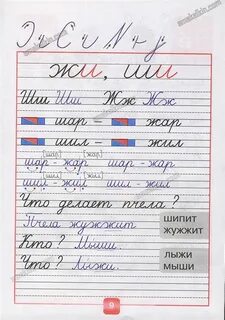 жи, ши
Шш Шш Жж Жж
шар – жар
шил – жил
[шар] [жар]
шар - жар шар - жар
[шыл] [жыл]
шил - жил шил - жил
Что делает пчела?
Пчела жужжит
ШИПИТ
ЖУЖЖИТ
Кто? Мыши.
Что? Лыжи.
ЛЫЖИ
МЫШИ
9